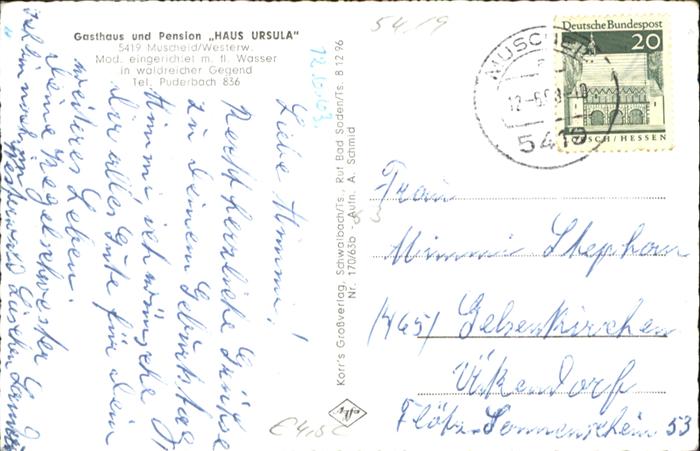 Gasthaus und Pension „HAUS URSULA"
5419 Muscheid/Westerw.
Mod. eingerichtet m. fl. Wasser
in waldreicher Gegend
Tel. Puderbach 836
5419
Liebe Mimmi!
Recht herzliche Grüße
zu Deinem Geburtstag
Mimmi ich wünsche
Dir alles Gute für dein
weiteres Leben.
Deine Kegelschwester
Ich bin noch im Westerwald
Korr's Großverlag, Schwalbach/Ts., Ruf Bad Soden/Ts: 8 12 96
Nr. 170/65b - Aufn. A. Schmid
Deutsche Bundespost
20
LORSCH/HESSEN
MUSCHEID
5419
Frau
Mimmi Stephan
/465/ Gelsenkirchen
Ückendorf
Flöz-Sonnenschein 53